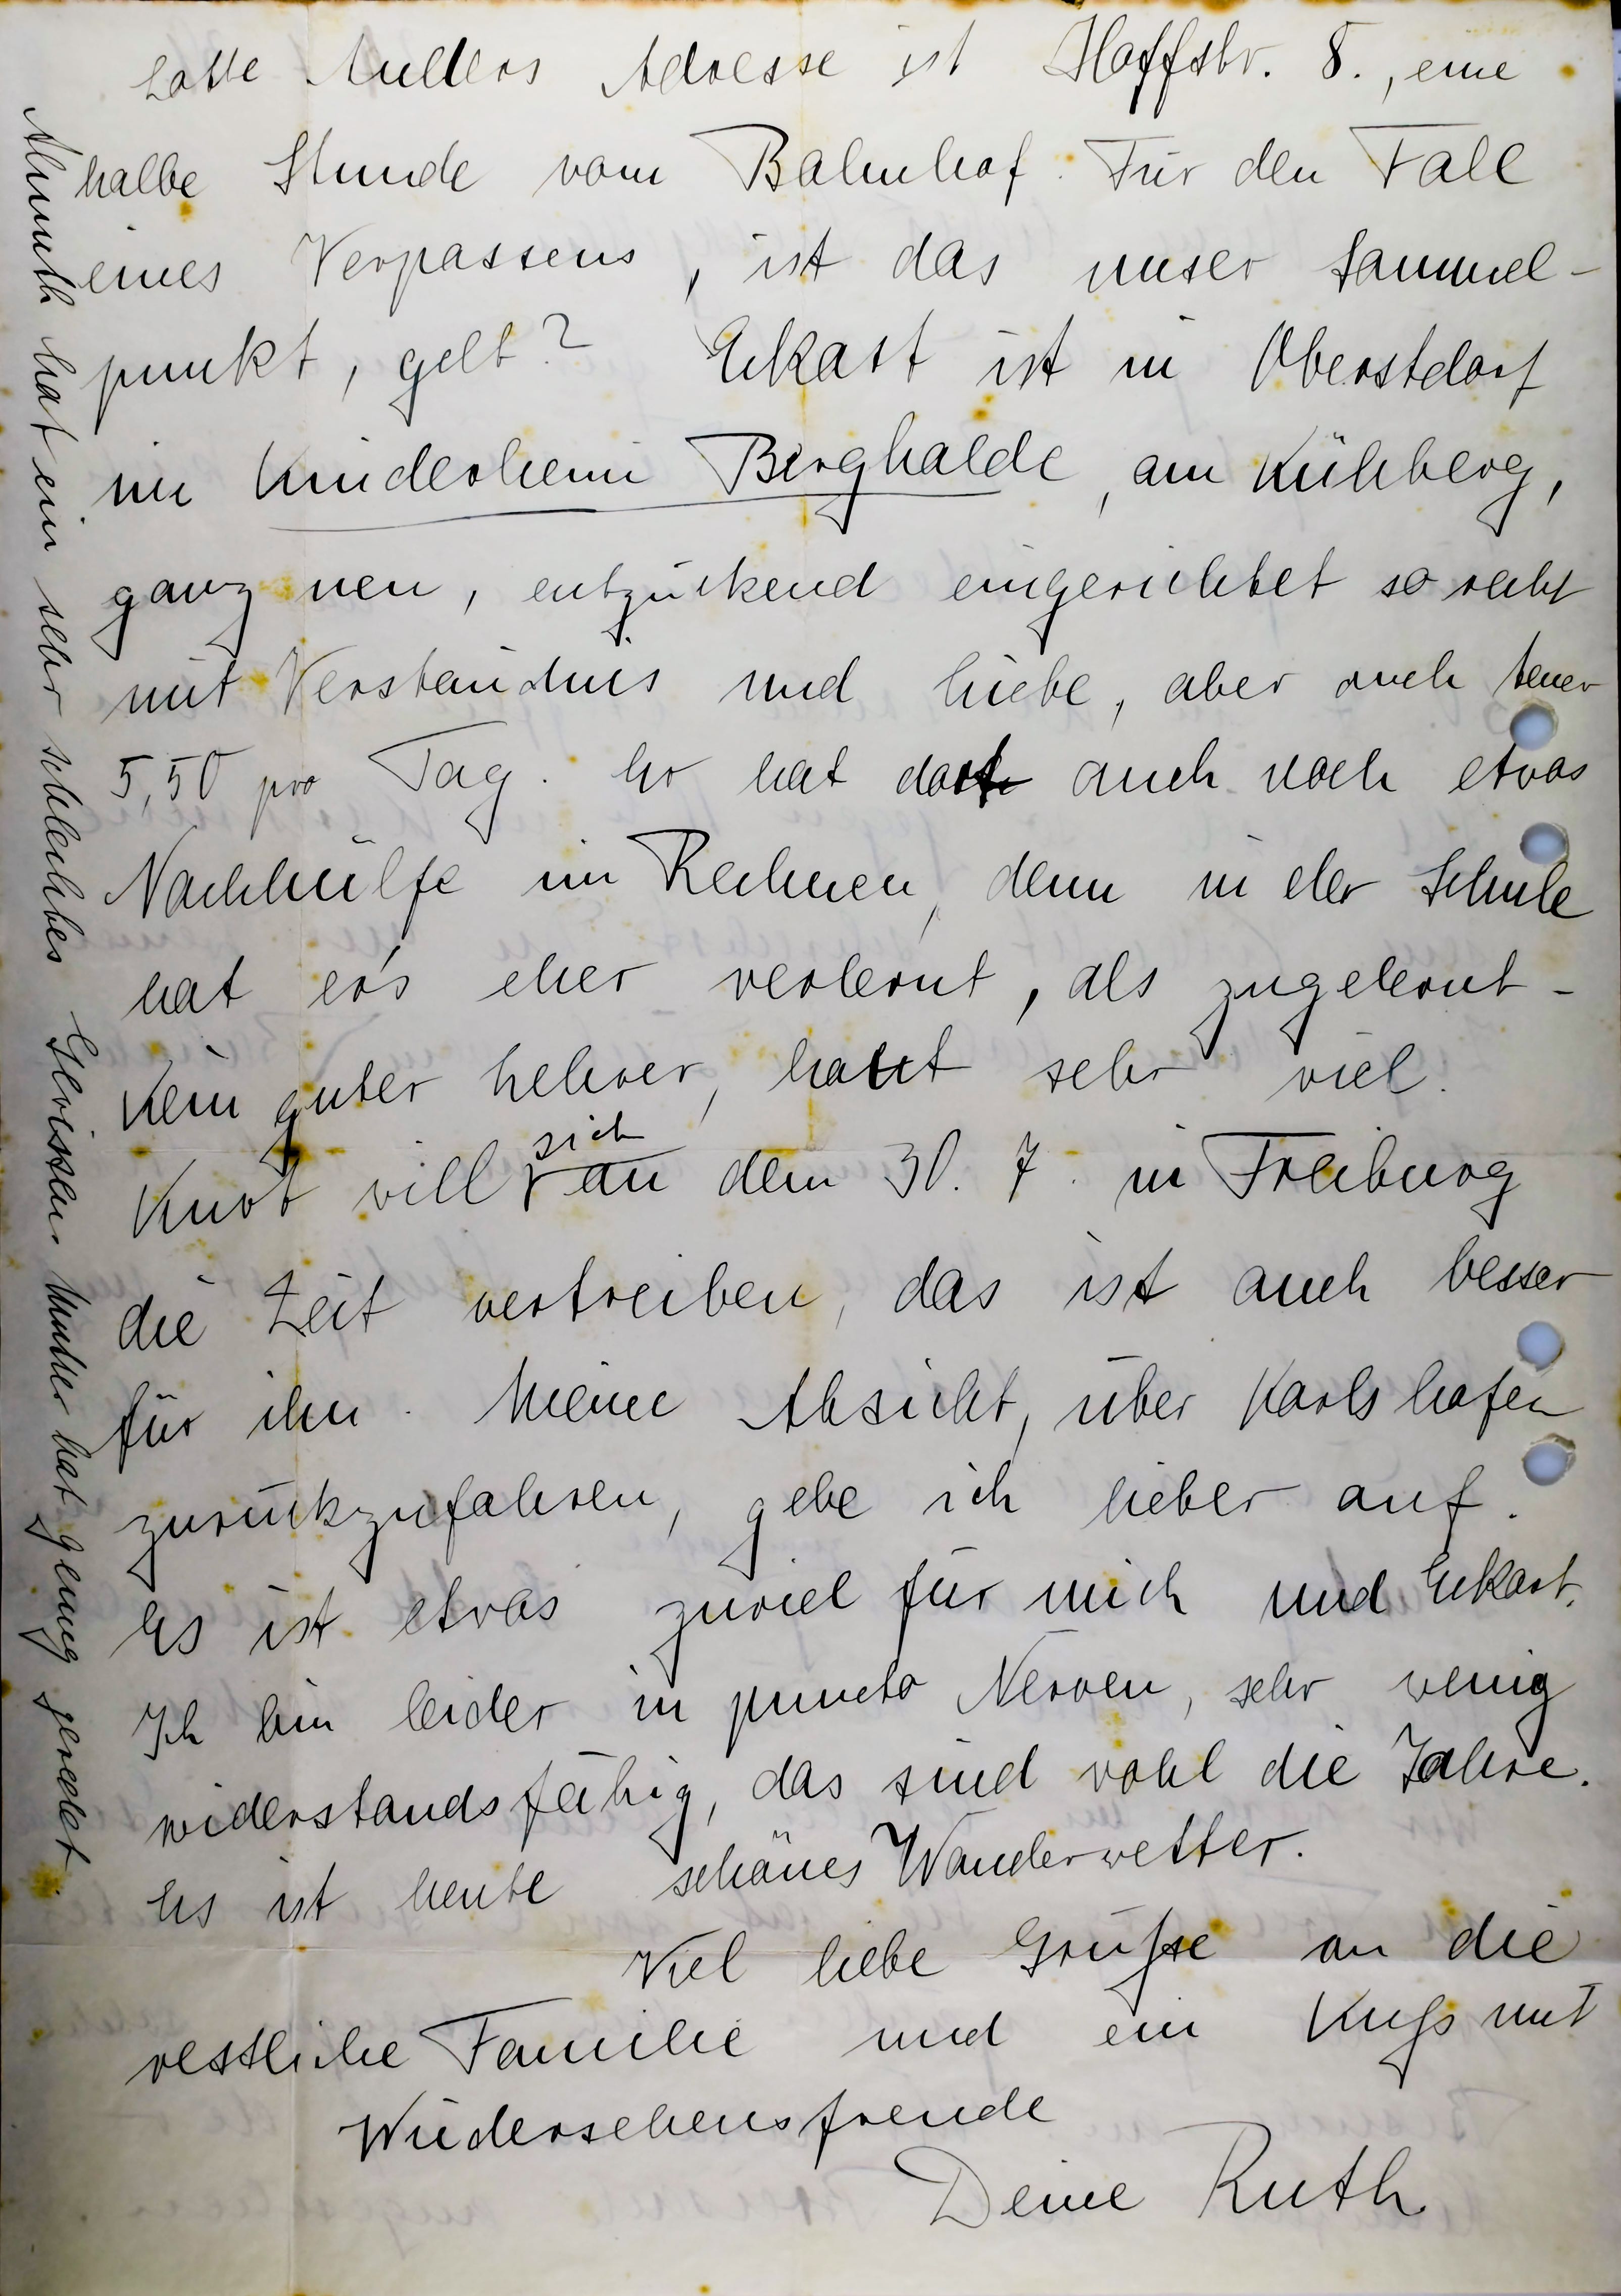 Lotte Müllers Adresse ist Hoffstr. 8., eine
halbe Stunde vom Bahnhof. Für den Fall
eines Verpassens, ist das unser Sammel-
punkt, gelt? Ekart ist in Oberstdorf
im Kinderheim Berghalde, am Kühberg,
ganz neu, entzückend eingerichtet so recht
mit Verständnis und Liebe, aber auch teuer
5,50 pro Tag. Er hat dort auch noch etwas
Nachhülfe im Rechnen, denn in der Schule
hat er's eher verlernt, als zugelernt -
Kein guter Lehrer, haut sehr viel.
sich
Kurt will an dem 30. 7. in Freiburg
die Zeit vertreiben, das ist auch besser
für ihn. Meine Absicht, über Karlshafen
zurückzufahren, gebe ich lieber auf.
Es ist etwas zuviel für mich und Ekart.
Ich bin leider in puncto Nerven, sehr wenig
widerstandsfähig, das sind wohl die Jahre.
Es ist heute schönes Wanderwetter.
Viel liebe Grüße an die
restliche Familie und ein Kuß mit
Wiedersehensfreude
Deine Ruth
Almuth hat ein sehr schlechtes Gewissen. Mutter hat genug geredet.